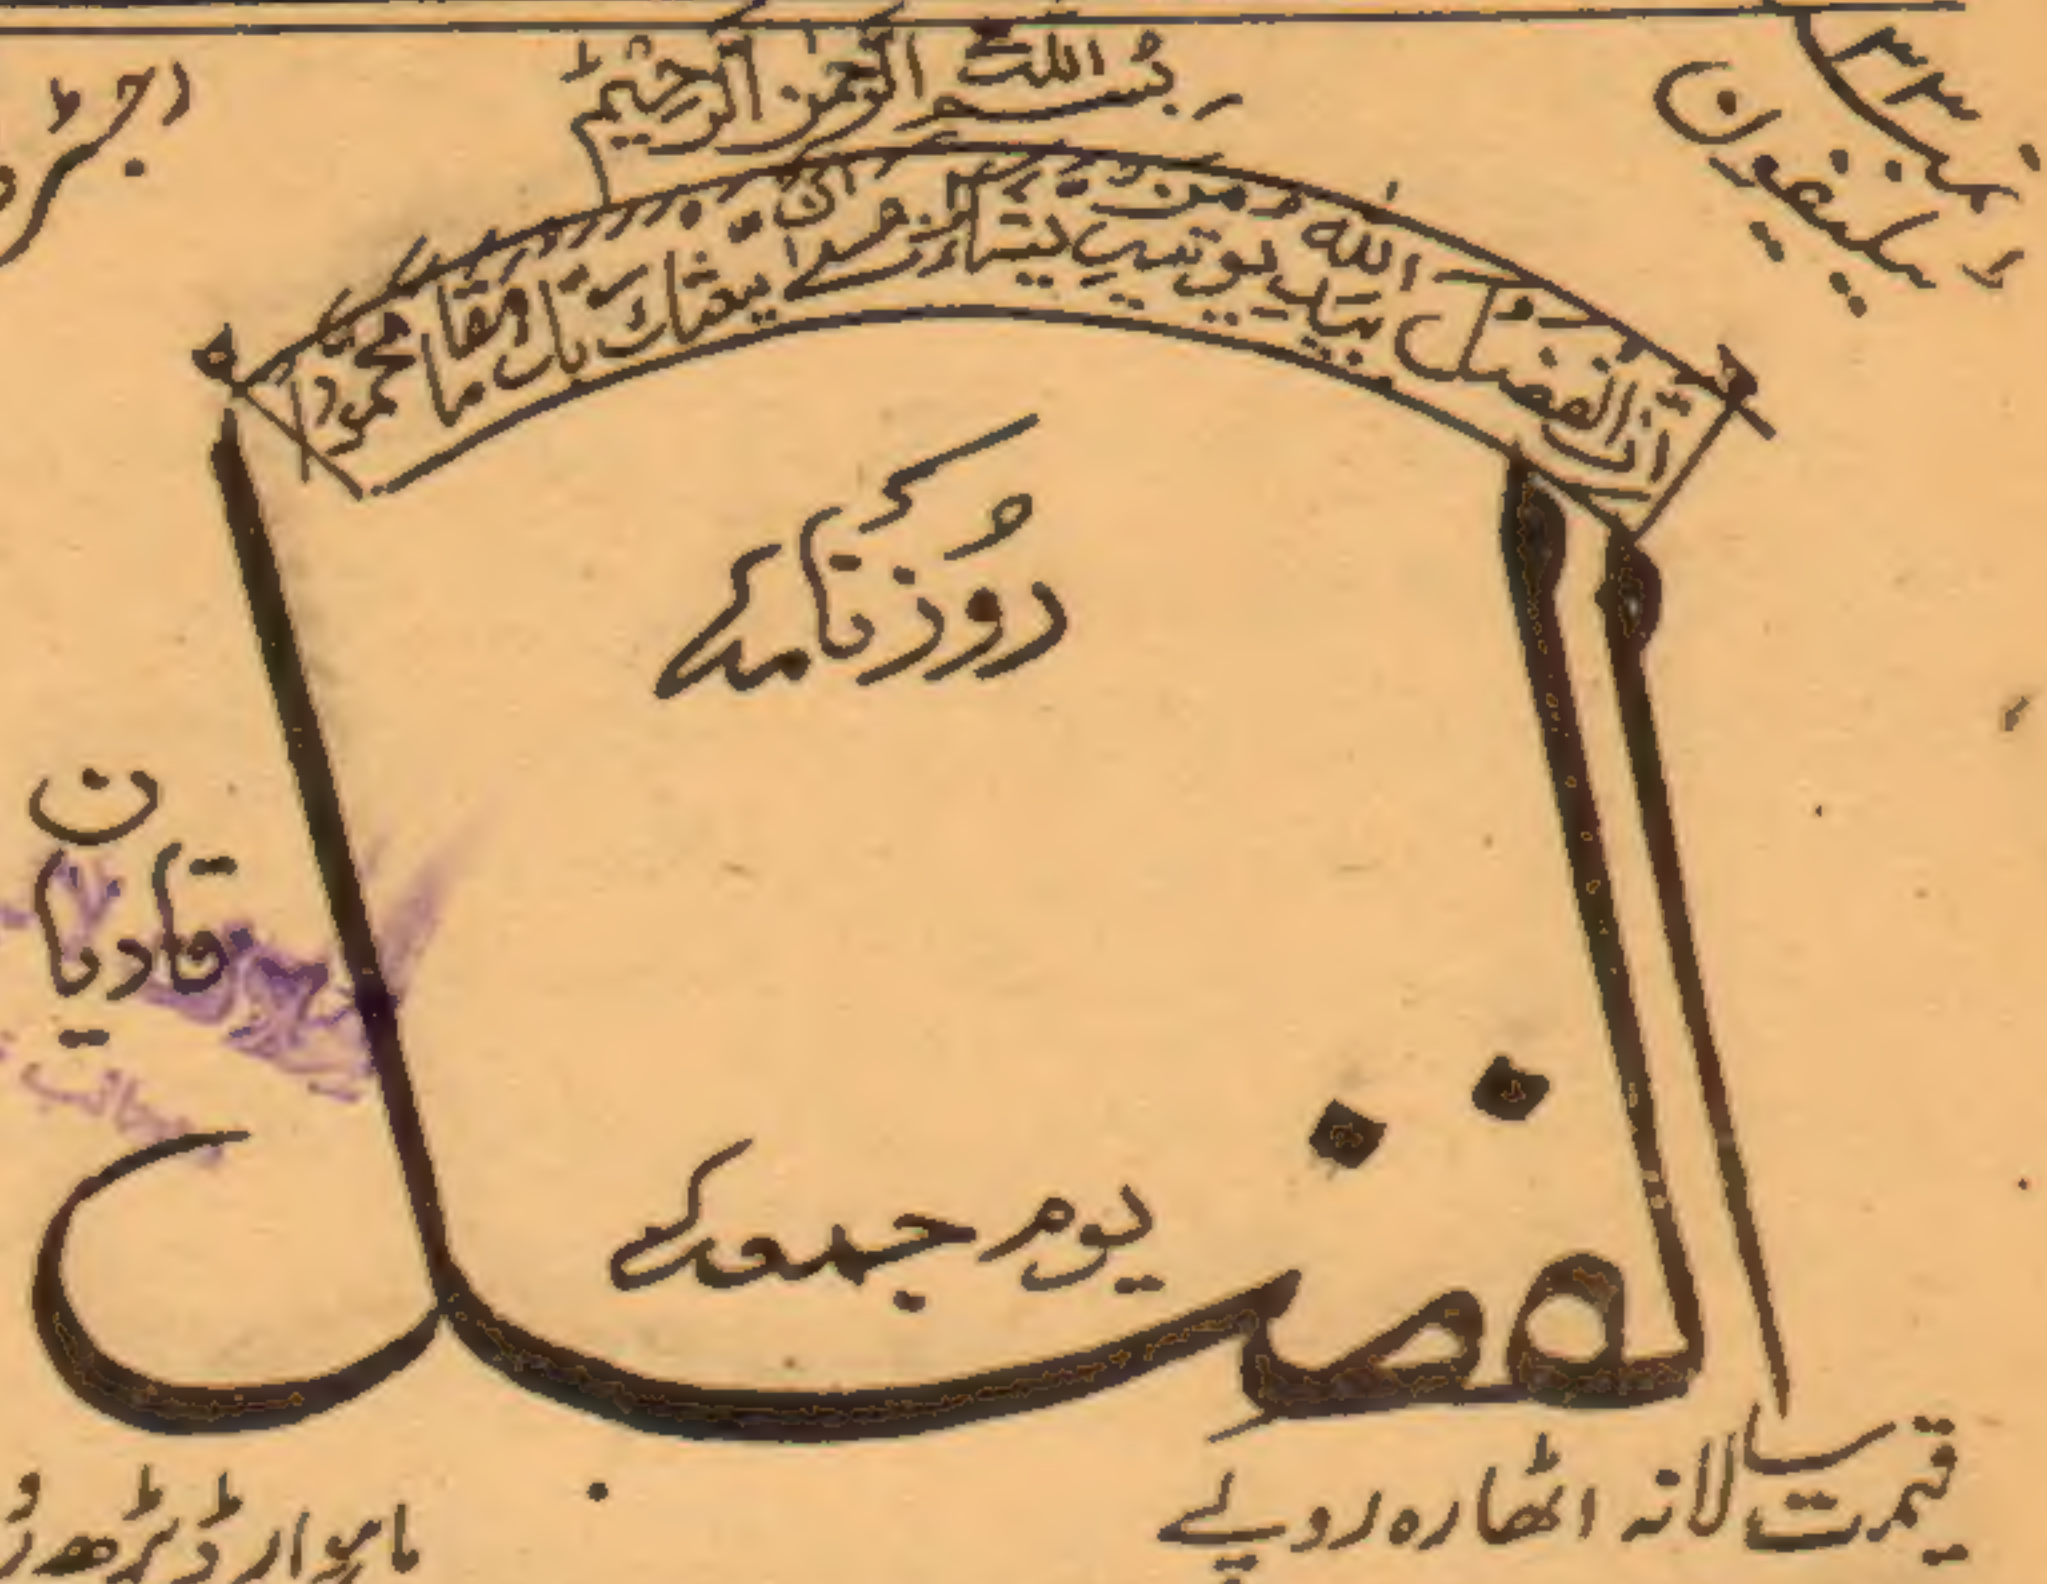 بسم الله الرحمن الرحيم
ٹیلیفون نمبر ۳۳
ان الفضل بید الله یوتیہ من یشاء
عسٰى ان یبعثک ربک مقاما محمودا
روزنامہ
الفضل
قادیان
یوم جمعہ
قیمت سالانہ اٹھارہ روپے
ماہوار ڈیڑھ